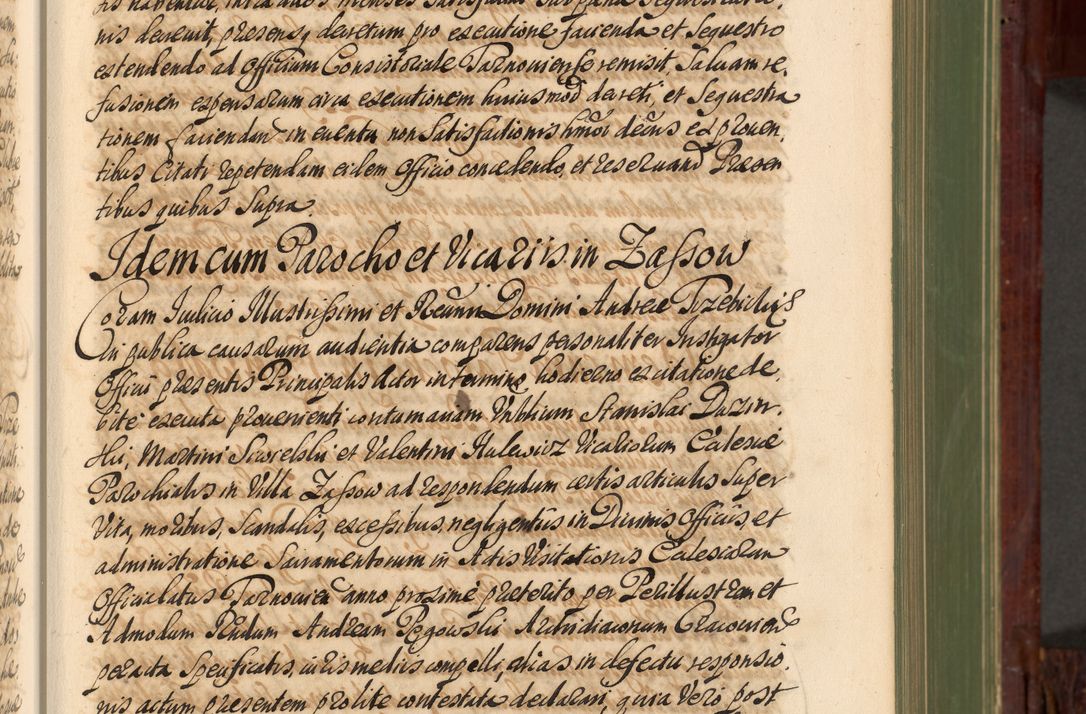 nis decreuit, presens decretum pro executione facienda et Sequestro
extendendo ad Officium Consistoriale Tarnouiense remisit, Saluam re,
fusionem expensarum circa executionem huiusmod decreti, et Sequestra
tionem faciendam in euentu non Satisfactionis hmoi decus ex prouen,
tibus Citati repetendam eidem Officio concedendo, et reseruand Presen
tibus quibus Supra.
Idem cum Parocho et Vicariis in Zassow
Coram Iudicio Illustrissimi et Reumi Domini Andreæ Trzebicki
In publica causarum audientia comparens personaliter Instigator
Officii presentis Principalis Actor in termino hodierno ex citatione de,
bite executa prouenienti contumaciam Vnblium Stanislai
Martini et Valentini Halewicz Vicariorum Ecclesiæ
Parochialis in Villa Zassow ad respondendum certis articulis Super
Vita, moribus, Scandalis, excessibus, negligentiis in Diuinis Officiis, et
administratione Sacramentorum in Actis Visitationis Ecclesiarum
Officialatus Tarnouien anno proxime preterito per Perillustrem et
Admodum Rndum Andream Pegowski Archidiaconum Cracouien
peracta Specificatis, iuris mediis compelli, alias in defectu responsio,
nis actum presentem pro lite contestata declarari, quia Vero post